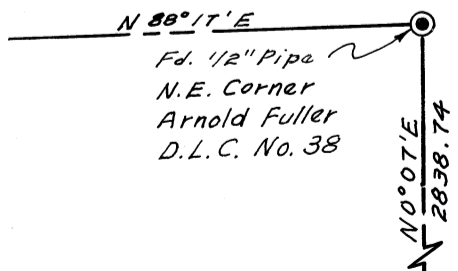 N 88°17'E
Fd. 1/2" Pipe
N.E. Corner
Arnold Fuller
D.L.C. No. 38
N0°07'E
2838.74